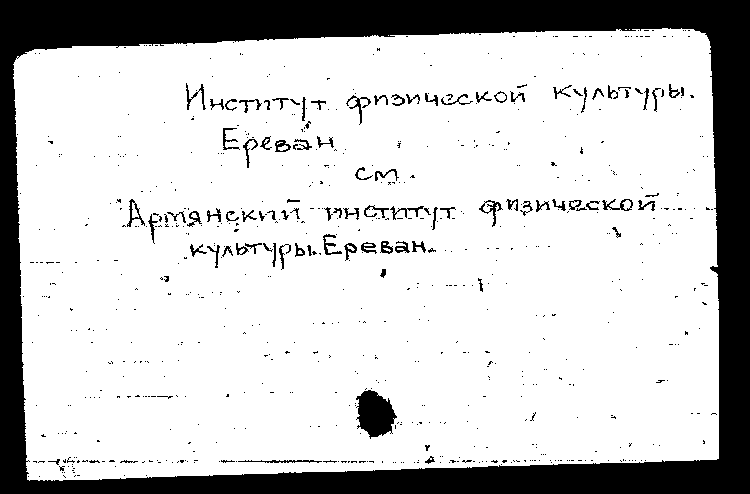 Институт физической культуры.
Ереван
см.
Армянский институт физической
культуры. Ереван.